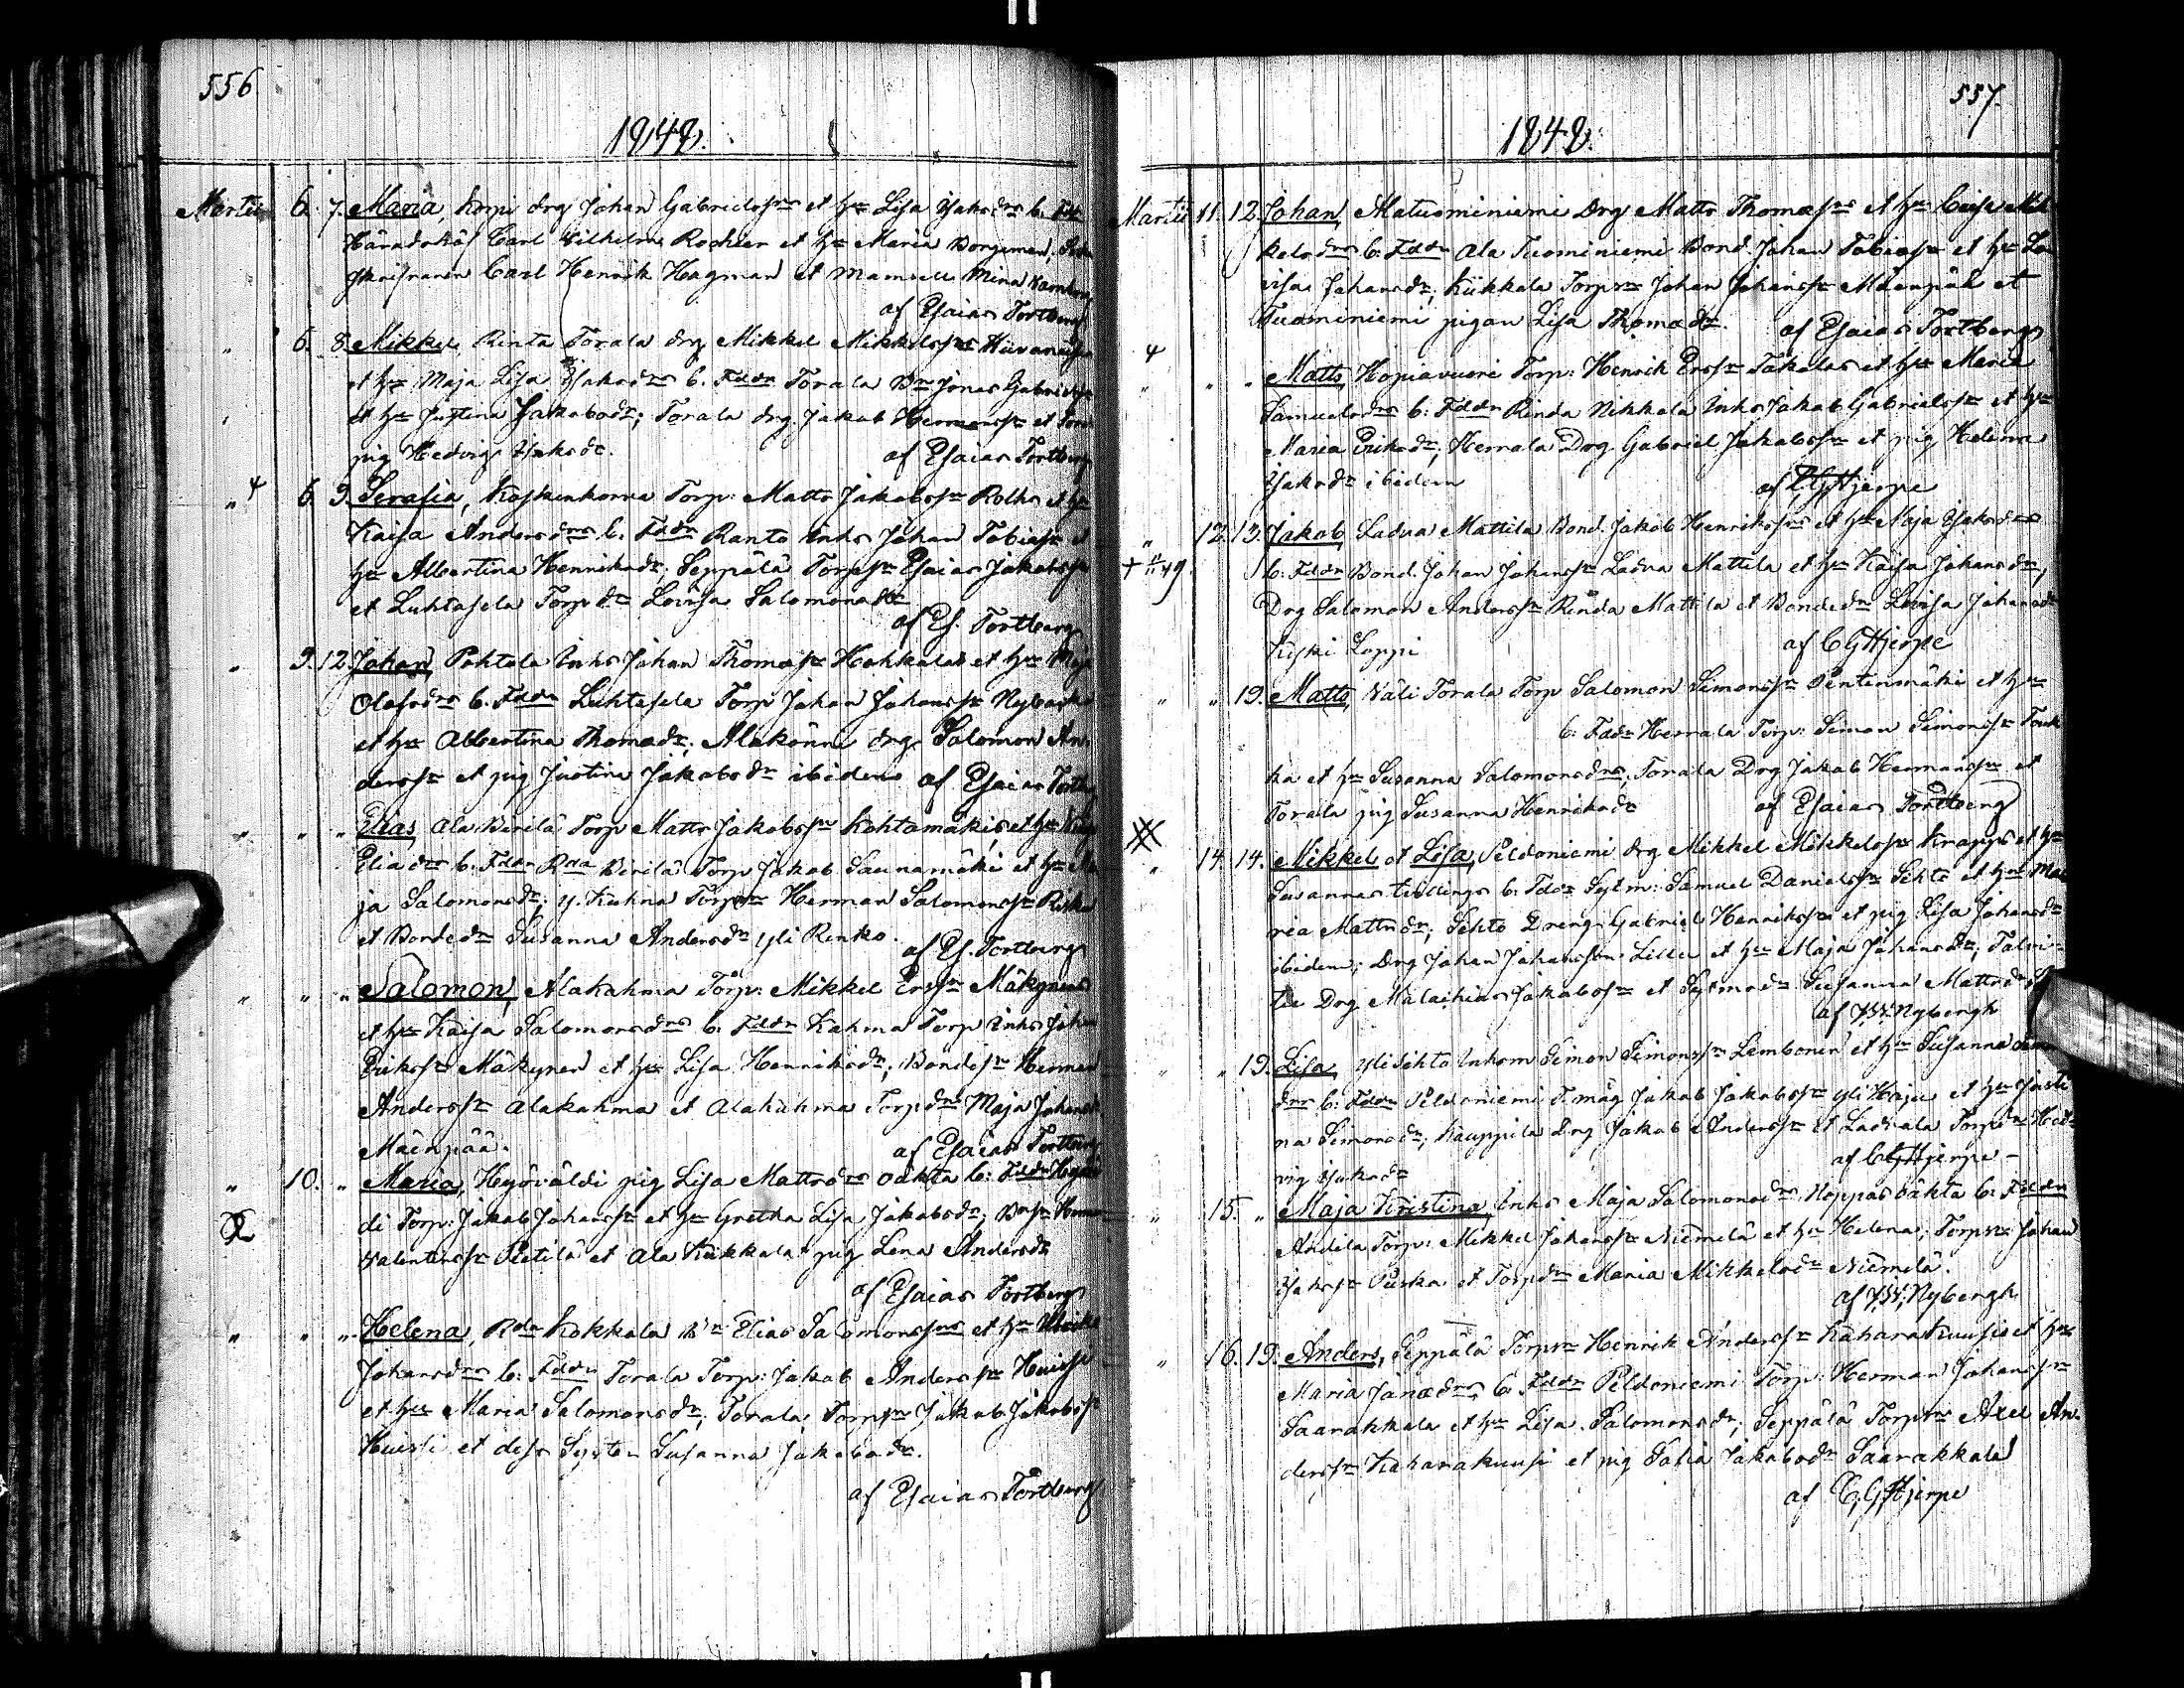 556
1848.
Martii 6. 7. Maria, Korpi drg Johan Gabrielsns et hu Lisa Isaksdrs b. Fddr
Häradshöf Carl Vilhelm Roshier et hu Maria Borgeman,
Carl Henrik Hagman et Mamsell Mina
af Esaias Tortberg
" 6. 8. Mikkel, Rinta Torala drg Mikkel Mikkelsns
et hu Maja Lisa Isaksdrs b. Fddr Torala Bn Jonas Gabrielsn
et hu Justina Jakobsdr; Torala drg Jakob Hermansn et
pig Hedvig Isaksdr. af Esaias Tortberg
" 4 6. 9. Serafia, Koskenkorva Torp: Matts Jakobsn et hu
Kaisa Andersdrs b. Fddr Ranto Inhs Johan Tobiasn et
hu Albertina Henriksdr; Seppälä Torpsn Esaias Jakobsn
et Luhtasela Torpdr Lovisa Salomonsdr
af Es. Tortberg
" 9. 12. Johan, Pohtola Inhs Johan Thomæsn et hu Maja
Olofsdrs b. Fddr Luhtasela Torp Johan Johansn
et hu Albertina Thomædr; Alakönni drg Salomon An-
dersn et pig Justina Jakobsdr ibidem af Esaias Tortberg
" " " Elias, Ala Pirilä Torp Matts Jakobsns Kohtamäki, et hu
Eliædrs b. Fddr Rda Pirilä Torp Jakob Saunamäki et hu Ma-
ja Salomonsdr; Y. Kuhna Torpsn Herman Salomonsn
et Bondedr Susanna Andersdr Yli Renko.
af Es. Tortberg
" " " Salomon, Alakahma Torp: Mikkel Ersn Mäkynen
et hu Kaisa Salomonsdrs b. Fddr Kahma Torp Inhs Johan
Eriksn Mäkynen et hu Lisa Henriksdr; Bondesn Herman
Andersn Alakahma et Alakahma Torpdr Maja Johansdr
Mäenpää. af Esaias Tortberg
" 10. " Maria, Hyövälti pig Lisa Mattsdrs oäkta b: Fddr
di Torp: Jakob Johansn et hu Gretha Lisa Jakobsdr; Bnsn
Valentinsn Pietilä et Ala Kukkala pig Lena Andersdr
af Esaias Tortberg
" " " Helena, Rda Kokkala Bn Elias Salomonsns et hu
Johansdrs b: Fddr Torala Torp: Jakob Andersn Huissi
et hu Maria Salomonsdr; Torala Torpsn Jakob Jakobsn
Huissi et dess Syster Susanna Jakobsdr.
af Esaias Tortberg
557.
1848.
Martii 11. 12. Johan, Matuominiemi Drg Matts Thomæsns et hu Caisa Mik-
kelsdrs b: Fddr Ala Tuominiemi Bond. Johan Tobiæsn et hu Lo-
visa Johansdr; Kukkala Torpsn Johan Johansn Mäenpää et
Tuominiemi pigan Lisa Thomædr. af Esaias Tortberg
4
" " " Matts, Hopiavuori Torp: Henrik Ersn Takalas et hu Maria
Samuelsdrs b: Fddr Rinda Nikkola Inhs Jakob Gabrielsn et hu
Maria Eriksdr; Herrala Drg Gabriel Jakobsn et pig Helena
Isaksdr ibidem af CGHjerpe
" 12. 13. Jakob, Ladva Mattila Bond. Jakob Henriksns et hu Maja Isaksdrs
b: Fddr Bond. Johan Johansn Ladva Mattila et hu Kaisa Johansdr;
Drg Salomon Andersn Rinda Mattila et Bondedr Lovisa Johansdr
Luski Loppi af CGHjerpe
" " 19. Matts, Väli Torala Torp Salomon Simonsns Pentinmäki et hu
b: Fddr Herrala Torp: Simon Simonsn Touk-
ka et hu Susanna Salomonsdrs, Torala Drg Jakob Hermansn et
Torala pig Susanna Henriksdr af Esaias Tortberg
" 14. 14. Mikkel et Lisa, Peldoniemi drg Mikkel Mikkelsns Krapps et hu
Susannas tvillingar b: Fddr Sytm: Samuel Danielsn Sihto et hu Ma-
ria Mattsdr; Sihto Dreng Gabriel Henriksn et pig Lisa Johansdr
ibidem; Drg Johan Johansson Lillu et hu Maja Johansdr; Talvi-
tie Drg Malachias Jakobsn et Sytmsdr Susanna Mattsdr
af J.W. Nybergh
" " 19. Lisa, Yli Sihto Inhsm Simon Simonsn Lembonen et hu Susanna
drs b: Fddr Peldoniemi Jakob Jakobsn Yli Haju et hu Justi-
na Simonsdr; Kauppila Drg Jakob Andersn et Ladvala Torpdr Hed-
vig Isaksdr af CGHjerpe -
" 15. " Maja Kristina, Inhs Maja Salomonsdr Noppas oäkta b: Fddr
Andila Torp: Mikkel Johansn Niemelä et hu Helena; Torpsn Johan
Isaksn Puska et Torpdr Maria Mikkelsdr Niemelä.
af J.W. Nybergh
" 16. 19. Anders, Seppälä Torpsn Henrik Andersn Kaharakuusi et hu
Maria Janædrs b: Fddr Peldoniemi Torp: Herman Johansn
Saarakkala et hu Lisa Salomonsdr; Seppälä Torpsn Axel An-
dersn Kaharakuusi et pig Sofia Jakobsdr Saarakkala
af C,GHjerpe